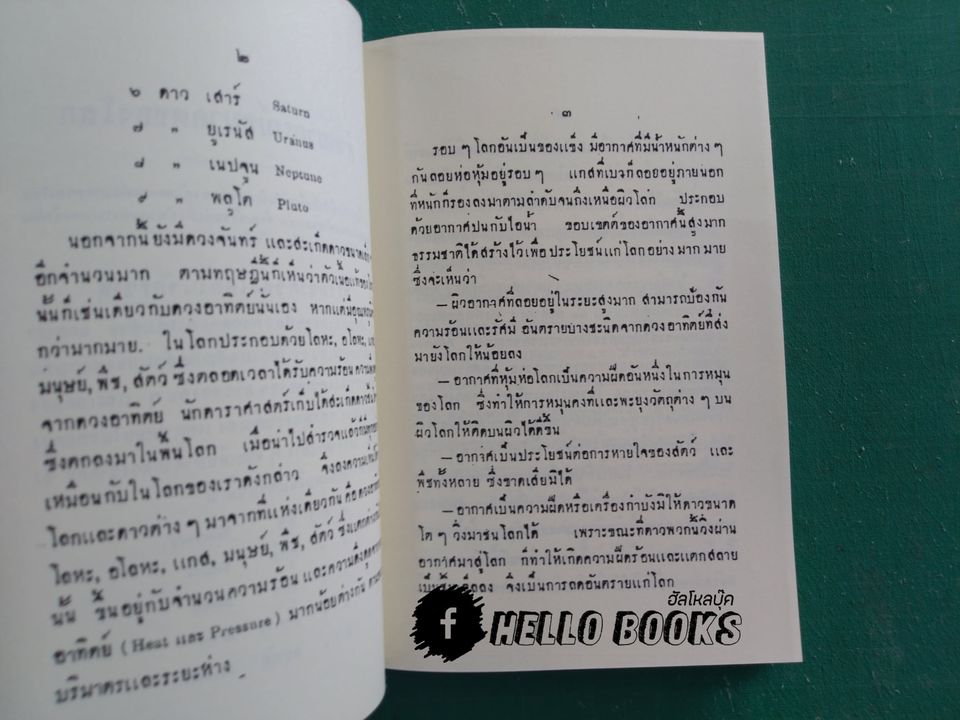 ๒
๖ ดาว เสาร์ Saturn
๗ " ยูเรนัส Uranus
๘ " เนปจูน Neptune
๙ " พลูโต Pluto
นอกจากนี้ ยังมีดวงจันทร์ และสะเก็ดดาวขนาด
อีกจำนวนมาก ตามทฤษฎีนี้ก็เห็นว่าตัวเนื้อแท้ของ
นั้นก็เช่นเดียวกับดวงอาทิตย์นั่นเอง หากแต่มีอุณหภูมิ
กว่ามากมาย. ในโลกประกอบด้วยโลหะ, อโลหะ,
มนุษย์, พืช, สัตว์ ซึ่งตลอดเวลาได้รับความร้อน
จากดวงอาทิตย์ นักดาราศาสตร์เก็บได้สะเก็ดดาว
ซึ่งตกลงมาในพื้นโลก เมื่อนำไปสำรวจแล้วก็มี
เหมือนกับในโลกของเราดังกล่าว จึงลงความ
โลกและดาวต่าง ๆ มาจากที่แห่งเดียวกัน คือ
โลหะ, อโลหะ, แกส, มนุษย์, พืช, สัตว์ ซึ่งแตกต่าง
นั้น ขึ้นอยู่กับจำนวนความร้อน และความดึงดูด
อาทิตย์ (Heat และ Pressure) มากน้อยต่างกัน ตาม
ปริมาตรและระยะห่าง
๓
รอบ ๆ โลกอันเป็นของแข็ง มีอากาศที่มีน้ำหนักต่าง ๆ
กันลอยห่อหุ้มอยู่รอบ ๆ แกสที่เบาก็ลอยอยู่ภายนอก
ที่หนักก็รองลงมาตามลำดับจนถึงเหนือผิวโลก ประกอบ
ด้วยอากาศปนกับไอน้ำ ขอบเขตต์ของอากาศนี้สูงมาก
ธรรมชาติได้สร้างไว้เพื่อประโยชน์แก่โลกอย่างมากมาย
ซึ่งจะเห็นว่า
— ผิวอากาศที่ลอยอยู่ในระยะสูงมาก สามารถป้องกัน
ความร้อนและรัศมี อันตรายบางชะนิดจากดวงอาทิตย์ที่ส่ง
มายังโลกให้น้อยลง
— อากาศที่หุ้มห่อโลกเป็นความฝืดอันหนึ่งในการหมุน
ของโลก ซึ่งทำให้การหมุนคงที่และพะยุงวัตถุต่าง ๆ บน
ผิวโลกให้ติดบนผิวได้ดีขึ้น
— อากาศเป็นประโยชน์ต่อการหายใจของสัตว์ และ
พืชทั้งหลาย ซึ่งขาดเสียมิได้
— อากาศเป็นความฝืดหรือเครื่องกำบังมิให้ดาวขนาด
โต ๆ วิ่งมาชนโลกได้ เพราะขณะที่ดาวพวกนี้วิ่งผ่าน
อากาศมาสู่โลก ก็ทำให้เกิดความฝืดร้อนและแตกสลาย
เป็นชิ้นเล็กลง จึงเป็นการลดอันตรายแก่โลก
ฮัลโหลบุ๊ค
f HELLO BOOKS